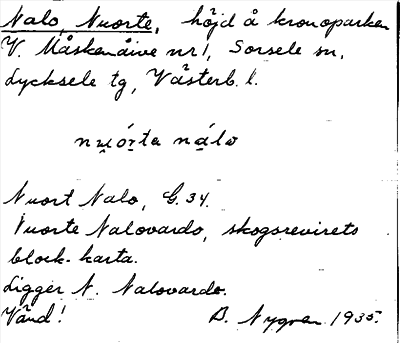 Nalo, Nuorte, höjd å kronoparken
V. Måskenåive nr 1, Sorsele sn,
Lycksele tg, Västerb. l.
nu̯ór̨ta nálo
Nuort Nalo, G. 34.
Nuorte Nalovardo, skogsrevirets
block-karta.
Ligger N. Nalovardo.
Vänd! B. Nygren 1935.